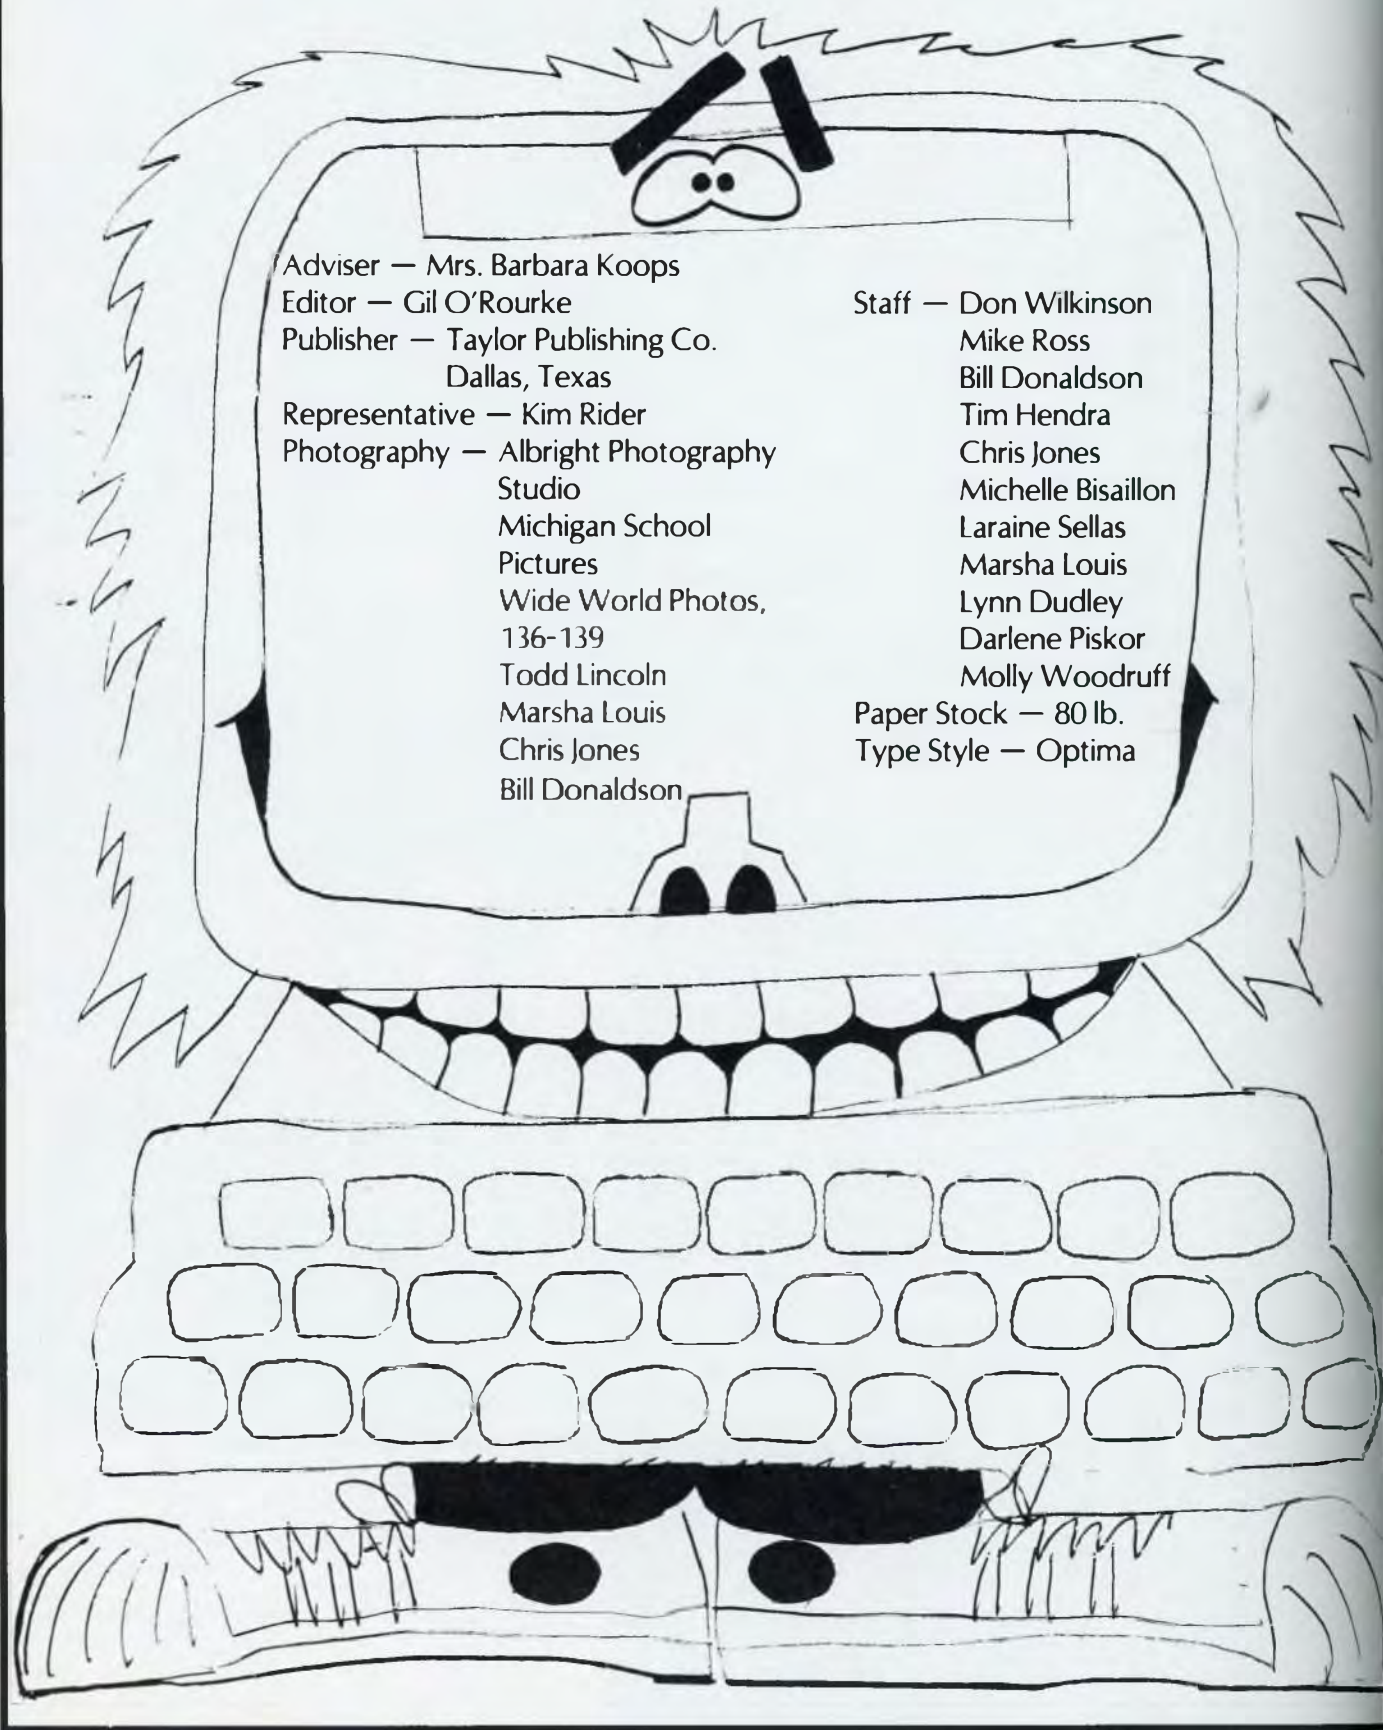 Adviser — Mrs. Barbara Koops
Editor — Gil O'Rourke
Publisher — Taylor Publishing Co.
Dallas, Texas
Representative — Kim Rider
Photography — Albright Photography
Studio
Michigan School
Pictures
Wide World Photos,
136-139
Todd Lincoln
Marsha Louis
Chris Jones
Bill Donaldson
Staff — Don Wilkinson
Mike Ross
Bill Donaldson
Tim Hendra
Chris Jones
Michelle Bisaillon
Laraine Sellas
Marsha Louis
Lynn Dudley
Darlene Piskor
Molly Woodruff
Paper Stock — 80 lb.
Type Style — Optima